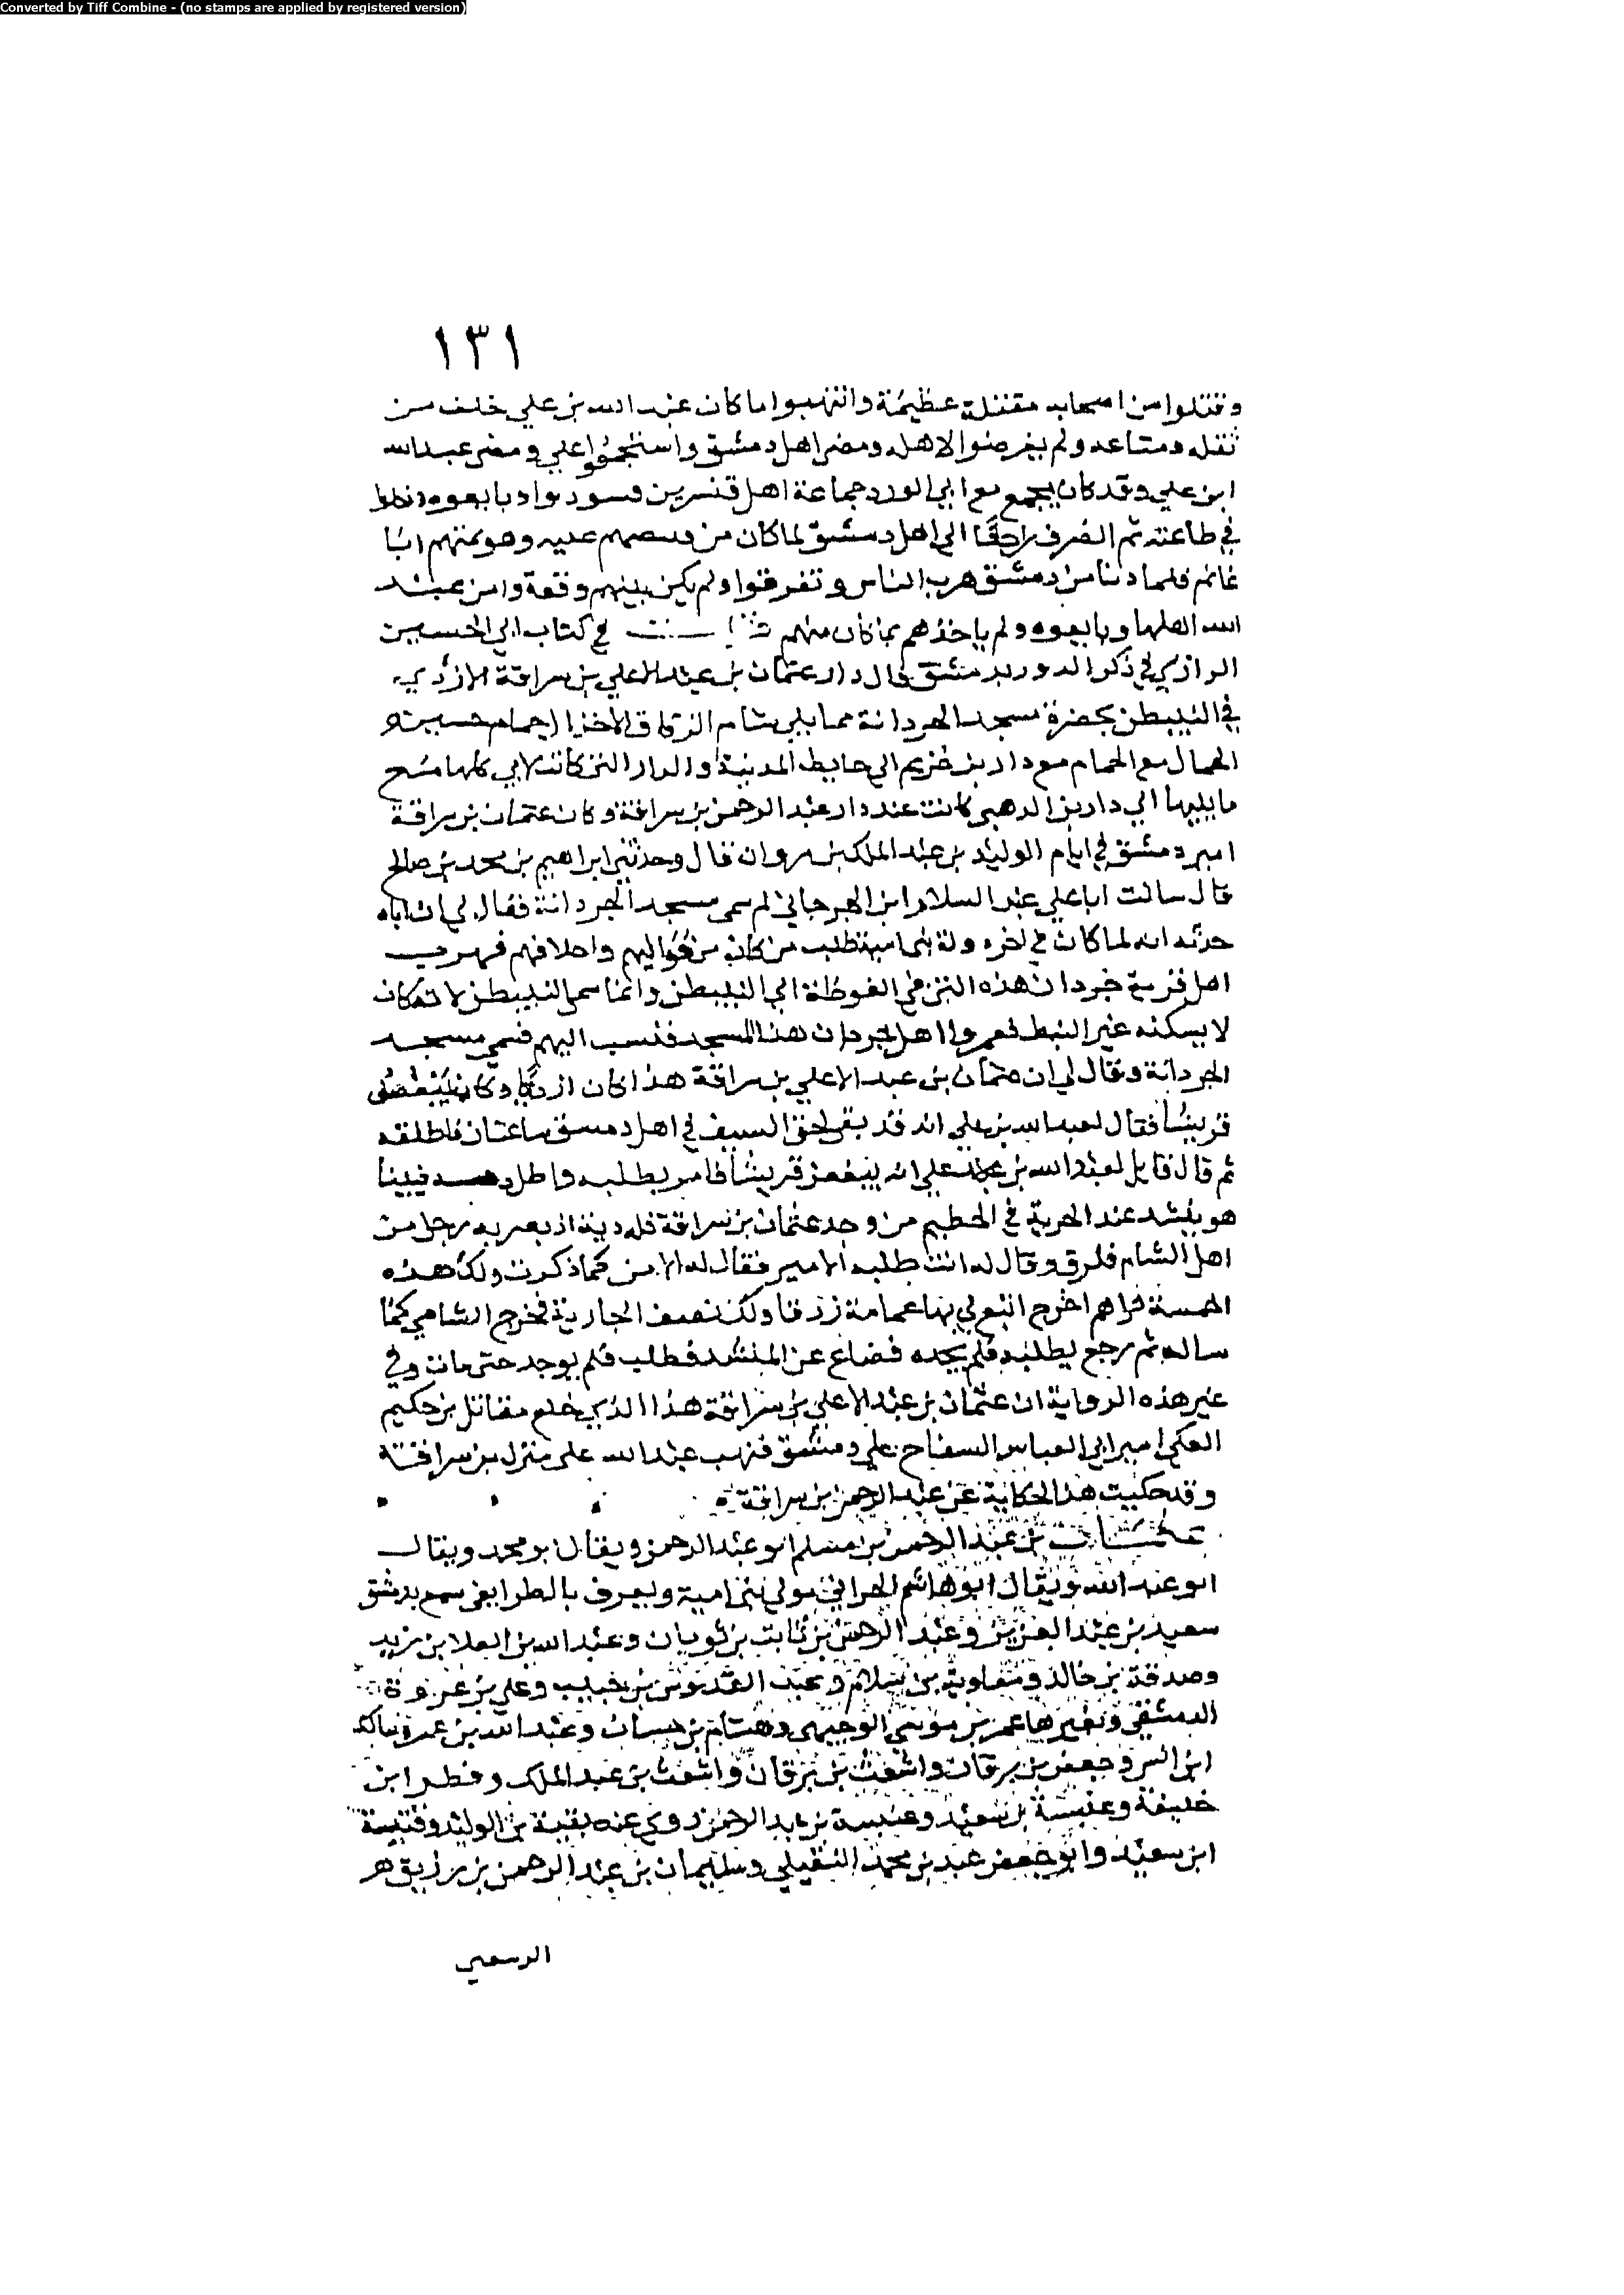 Converted by Tiff Combine - (no stamps are applied by registered version)
١٣١
وقتلوا من اصحابه مقتلة عظيمة وانتهبوا ما كان عبد الله بن علي خلف من
ثقله ومتاعه ولم يعرضوا لاهله ومضى اهل دمشق واستجمعوا علي ومضى عبد الله
ابن علي وقد كان يجمع مع ابي الورد جماعة اهل قنسرين فسودوا وبايعوه ودخلوا
في طاعته ثم انصرف راجعا الى اهل دمشق لما كان من عليه وهو يمنتهم ابا
غانم فلما دنا من دمشق هرب الناس وتفرقوا ولم يكن بينهم وقعة وامن عبد
الله اهلها وبايعوه ولم ياخذهم بما كان منهم في كتاب ابي الحسين
الرازي في ذكر الدور بدمشق قال دار عثمان بن عبد الاعلى بن سراقة الازدي
في النيبطن بحضرة مسجد الجردانة مما يلي شام الزقاق الاخذ
الحمال مع الحمام مع دار بن خزيم الى حايط المدينة والدار التي كانت لابي
ما يليها الى دار بن كانت عند دار عبد الرحمن بن سراقة وكان عثمان بن سراقة
امير دمشق في ايام الوليد بن عبد الملك بن مروان قال وحدثني ابراهيم بن محمد بن صالح
قال سالت ابا علي عبد السلام ابن الجرجاني لم سمي مسجد الجردانة فقال لي ان اباه
حدثه انه لما كان في اخره ولة بني امية تطلب من كان من مواليهم واحلافهم فهرب
اهل قرية جردان هذه التي في الغوطة الى النيبطن وانما سمي النيبطن لانه كان
لا يسكنه غير النبط فعمروا اهل جردان هذا المسجد فنسب اليهم فسمي مسجد
الجردانة وقال لي ان عثمان بن عبد الاعلى بن سراقة هذا كان ازديا وكان يبغض
قريشا فقال لعبد الله بن علي انه قد بقي لحق السيف في اهل دمشق ساعتان فاطلقه
ثم قال قايل لعبد الله بن علي انه يبغض قريشا فامر بطلبه فبينا
هو ينشد عند الحربة في الحطيم من وجد عثمان بن سراقة فله دية اذ بصر به رجل من
اهل الشام وقال له انت طلبه الامير فقال له الامر كما ذكرت ولك هذه
الخمسة دراهم اخرج ابتع لي بها عمامة زرقا ولك نصف الجارية فخرج الشامي كما
ساله ثم رجع يطلبه فلم يجده فضاع عن المنشد فطلب فلم يوجد حتى مات وفي
غير هذه الرواية ان عثمان بن عبد الاعلى بن سراقة هذا الذي خلع مقاتل بن حكيم
العكي امير ابي العباس السفاح على دمشق فنهب عبد الله على منزل بن سراقة
وقد حكيت هذا الحكاية عن عبد الرحمن بن سراقة
عثمان بن عبد الرحمن بن مسلم ابو عبد الرحمن ويقال بو محمد ويقال
ابو عبد الله ويقال ابو هاشم الحراني مولى بني امية ويعرف بالطرايفي سمع بدمشق
سعيد بن عبد العزيز وعبد الرحمن بن ثابت بن ثوبان وعبد الله بن العلا بن زيد
وصدقة بن خالد ومعاوية بن سلام وعبد القدوس بن حبيب وعلي بن عروة
الدمشقي وغيرها عمر بن موسى الوجيهي وهشام بن حسان وعبد الله بن عمرو
ابن انس وجعفر بن برقان واشعث بن برقان واشعث بن عبد الملك وفطر ابن
خليفة وعنبسة بن سعيد وعنبسة بن عبد الرحمن روى عنه بقية بن الوليد وقتيبة
ابن سعيد وابو جعفر عبد بن محمد النفيلي وسليمان بن عبد الرحمن بن رزيق
الرسعني